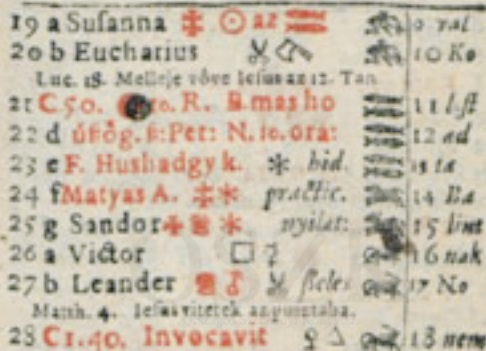 19 a Susanna ☉ az 9 val
20 b Eucharius 10 Ko
Luc. 18. Melleje vöve Iesus az 12. Tan
21 C 50. R. masho 11
22 d úfiög. Pet: N. 10. ora: 12 ad
23 e F. Hushadgy k. * hid. 13 ta
24 f Matyas A. * practic. 14 Ba
25 g Sandor * nyilat: 15 lint
26 a Victor □ 16 nak
27 b Leander ♂ 17 No
Matth. 4. Iesus vitetek az pusztaba.
28 C 1.40. Invocavit ♀ △ 18 nem